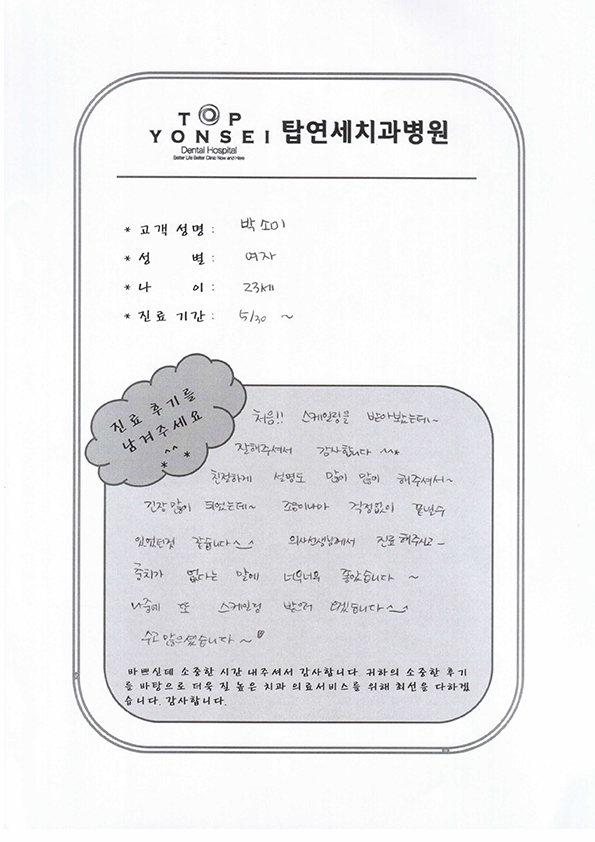 TOP
YONSEI 탑연세치과병원
Dental Hospital
Better Life Better Clinic Now and Here
* 고객성명 : 박소미
* 성 별 : 여자
* 나 이 : 23세
* 진료기간 : 5/30 ~
진료 후기를
남겨주세요
^^
* *
처음!! 스케일링을 받아봤는데~
잘해주셔서 감사합니다 ^^*
친절하게 설명도 많이 많이 해주셔서~
긴장 많이 되었는데~ 조금이나마 걱정없이 끝낼수
있었던것 같습니다^_^ 의사선생님께서 진료해주시고~
충치가 없다는 말에 너무너무 좋았습니다 ~
나중에 또 스케일링 받으러 오겠습니다^_^
수고 많으셨습니다~♡
바쁘신데 소중한 시간 내주셔서 감사합니다. 귀하의 소중한 후기
를 바탕으로 더욱 질 높은 치과 의료서비스를 위해 최선을 다하겠
습니다. 감사합니다.